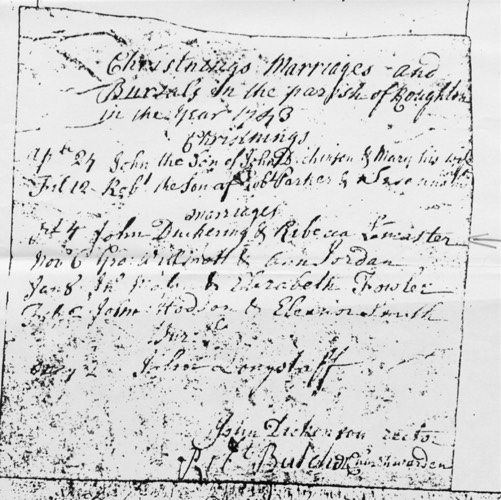 Christnings Marriages and
Burials in the parish of Roughton
in the Year 1743
Christnings
Ap 24 John the Son of John Dickinson & Mary his wife
12 Rob^t the Son of Rob^t Parker &
marriages
4 John Duckering & Ribecca Lancaster
Nov 6 Geo & Ann Jordan
Jan 8 & Elizabeth Fowler
John Hodson & Eleanor Smith
Bur
2 John Longstaff
John Dickenson rector
Rob^t Butcher Churchwarden